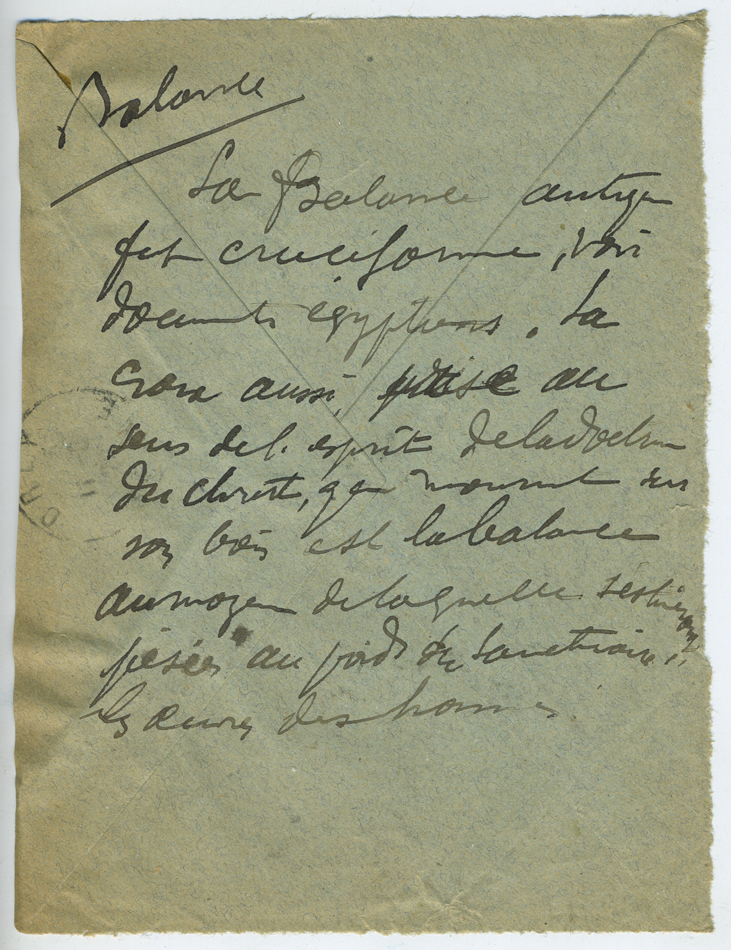 Balance
La Balance antique
fut cruciforme, voir
documents égyptiens. La
croix aussi, prise au
sens de l'esprit de la doctrine
du Christ, qui mourut sur
son bois est la balance
au moyen de laquelle
pesées au poids du Sanctuaire,
les œuvres des hommes